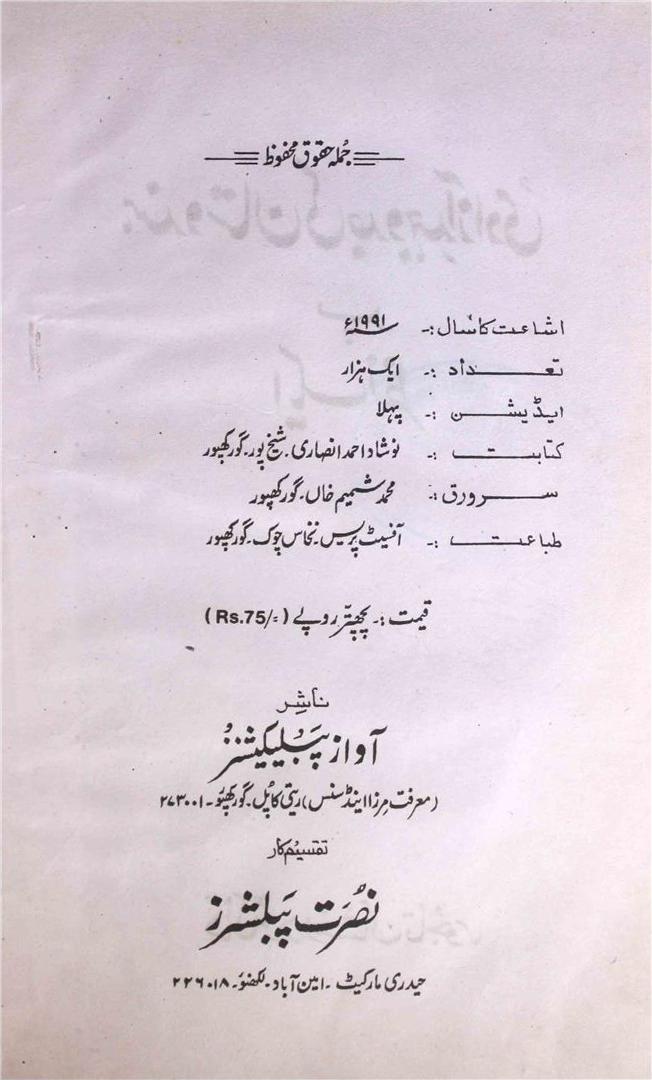 جُملہ حقوق محفوظ
اشاعت کا سال :۔ ۱۹۹۱ء
تعداد :۔ ایک ہزار
ایڈیشن :۔ پہلا
کتابت :۔ نوشاد احمد انصاری۔ شیخ پور۔ گورکھپور
سرورق :۔ محمد شمیم خاں۔ گورکھپور
طباعت :۔ آفسیٹ پریس۔ نخاس چوک۔ گورکھپور
قیمت :۔ پچھتّر روپے (Rs.75/=)
ناشِر
آواز پبلیکیشنز
(معرفت مرزا اینڈ سنس) ریتی کا پُل۔ گورکھپور۔ ۲۷۳۰۰۱
تقسیم کار
نصُرت پَبلشرز
حیدری مارکیٹ۔ امین آباد۔ لکھنؤ۔ ۲۲۶۰۱۸